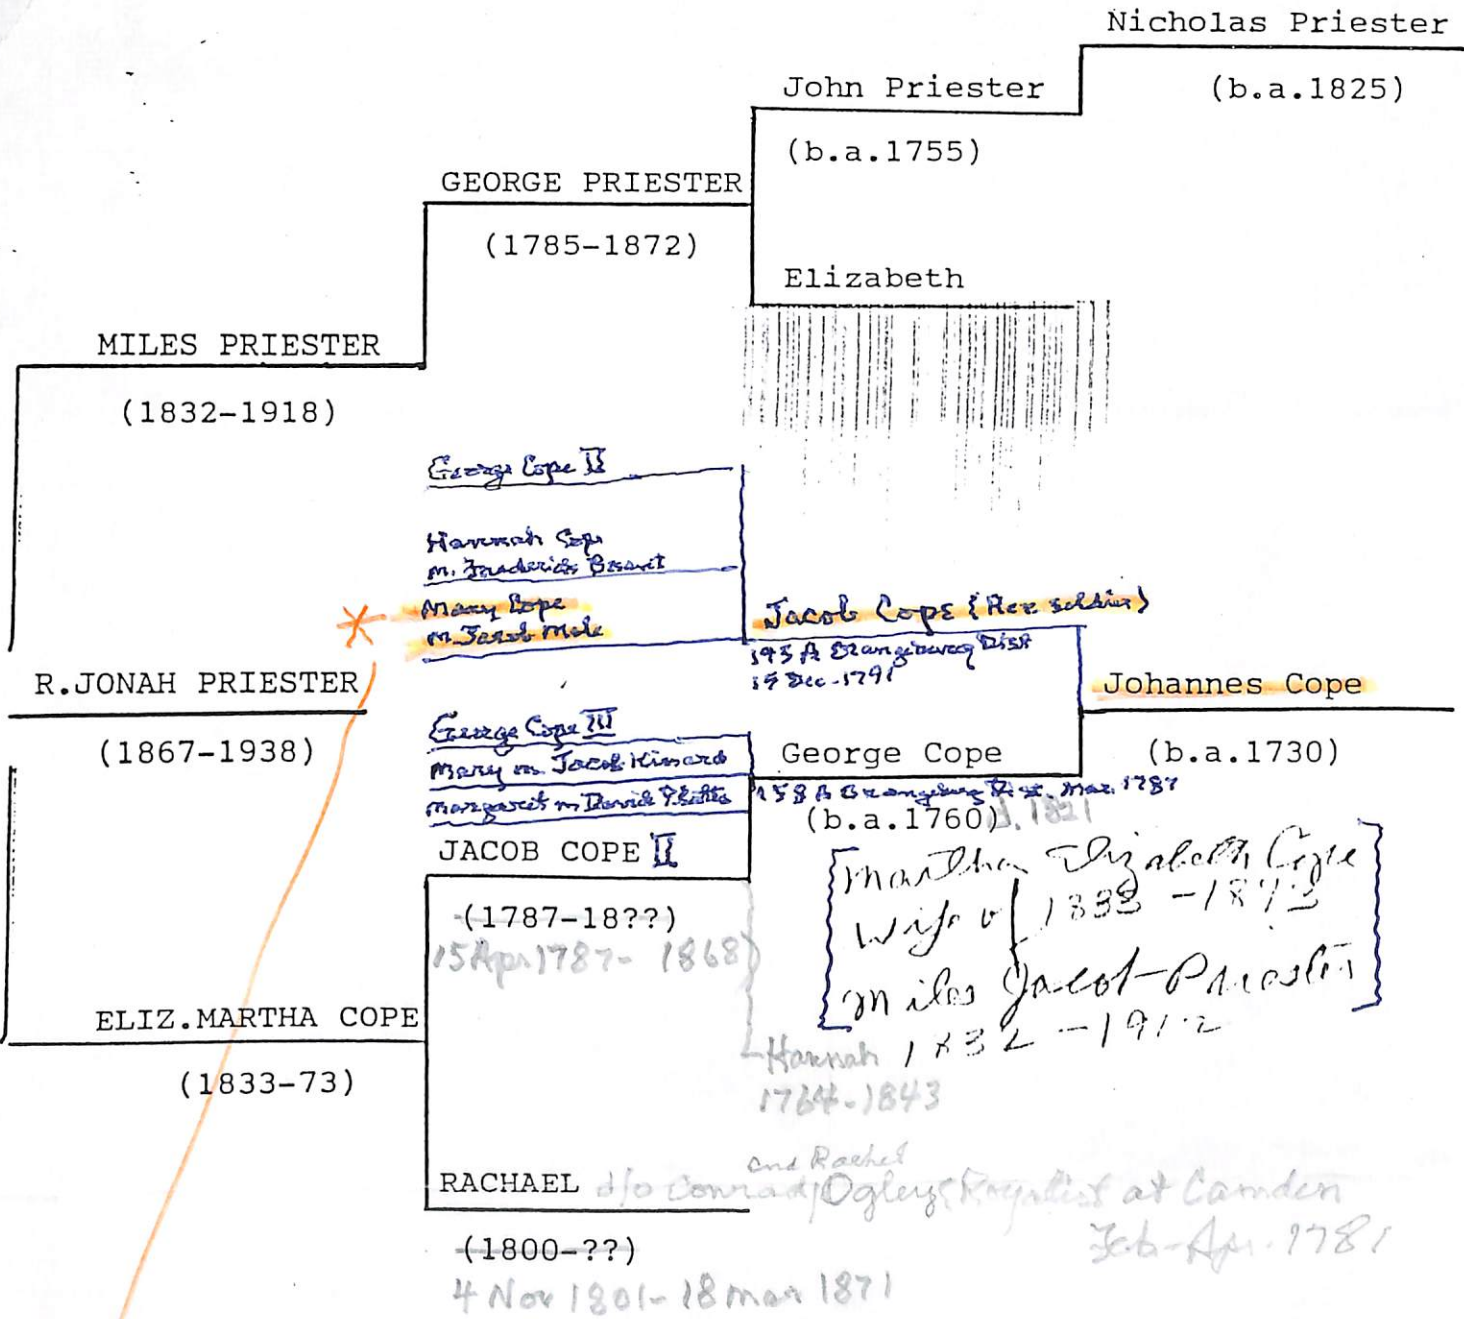 Nicholas Priester
(b.a.1825)
John Priester
(b.a.1755)
GEORGE PRIESTER
(1785-1872)
Elizabeth
MILES PRIESTER
(1832-1918)
George Cope II
Hannah Cope
m. Frederick
Mary Cope
m Jacob Mole
Jacob Cope (Rev soldier)
195 A Orangeburg Dist
15 Dec-1791
R.JONAH PRIESTER
(1867-1938)
Johannes Cope
(b.a.1730)
George Cope III
Mary m Jacob Kinard
Margaret m David
George Cope
158 A Orangeburg Dist. Mar. 1787
(b.a.1760) d. 1821
JACOB COPE II
(1787-18??)
15 Apr 1787- 1868
[Martha Elizabeth Cope
wife of 1833 -1873
Miles Jacob Priester]
1832 -1912
ELIZ.MARTHA COPE
(1833-73)
Hannah
1764-1843
and Rachel
RACHAEL d/o Conrad Ogley (Royalist at Camden
Feb-Apr. 1781
(1800-??)
4 Nov 1801- 18 mar 1871